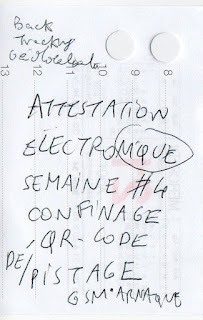 Back
Tracking
Géolocalisation
8
9
10
11
12
13
ATTESTATION
ELECTRONIQUE
SEMAINE #4
CONFINAGE
QR-CODE
DE/PISTAGE
GSM·ARNAQUE